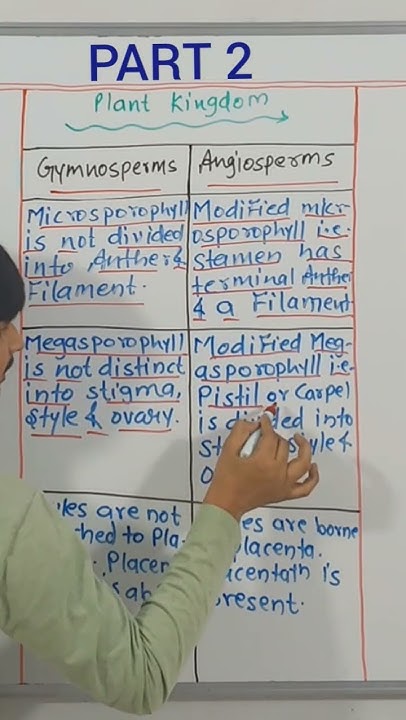 PART 2
Plant Kingdom
Gymnosperms
Angiosperms
Microsporophyll
is not divided
into Anther &
Filament.
Modified micr
osporophyll i.e.
stamen has
terminal Anther
& a Filament
Megasporophyll
is not distinct
into stigma,
style & ovary.
Modified Meg-
asporophyll i.e.
Pistil or Carpel
is divided into
are not
to Pla-
are borne
placenta.
is
present.